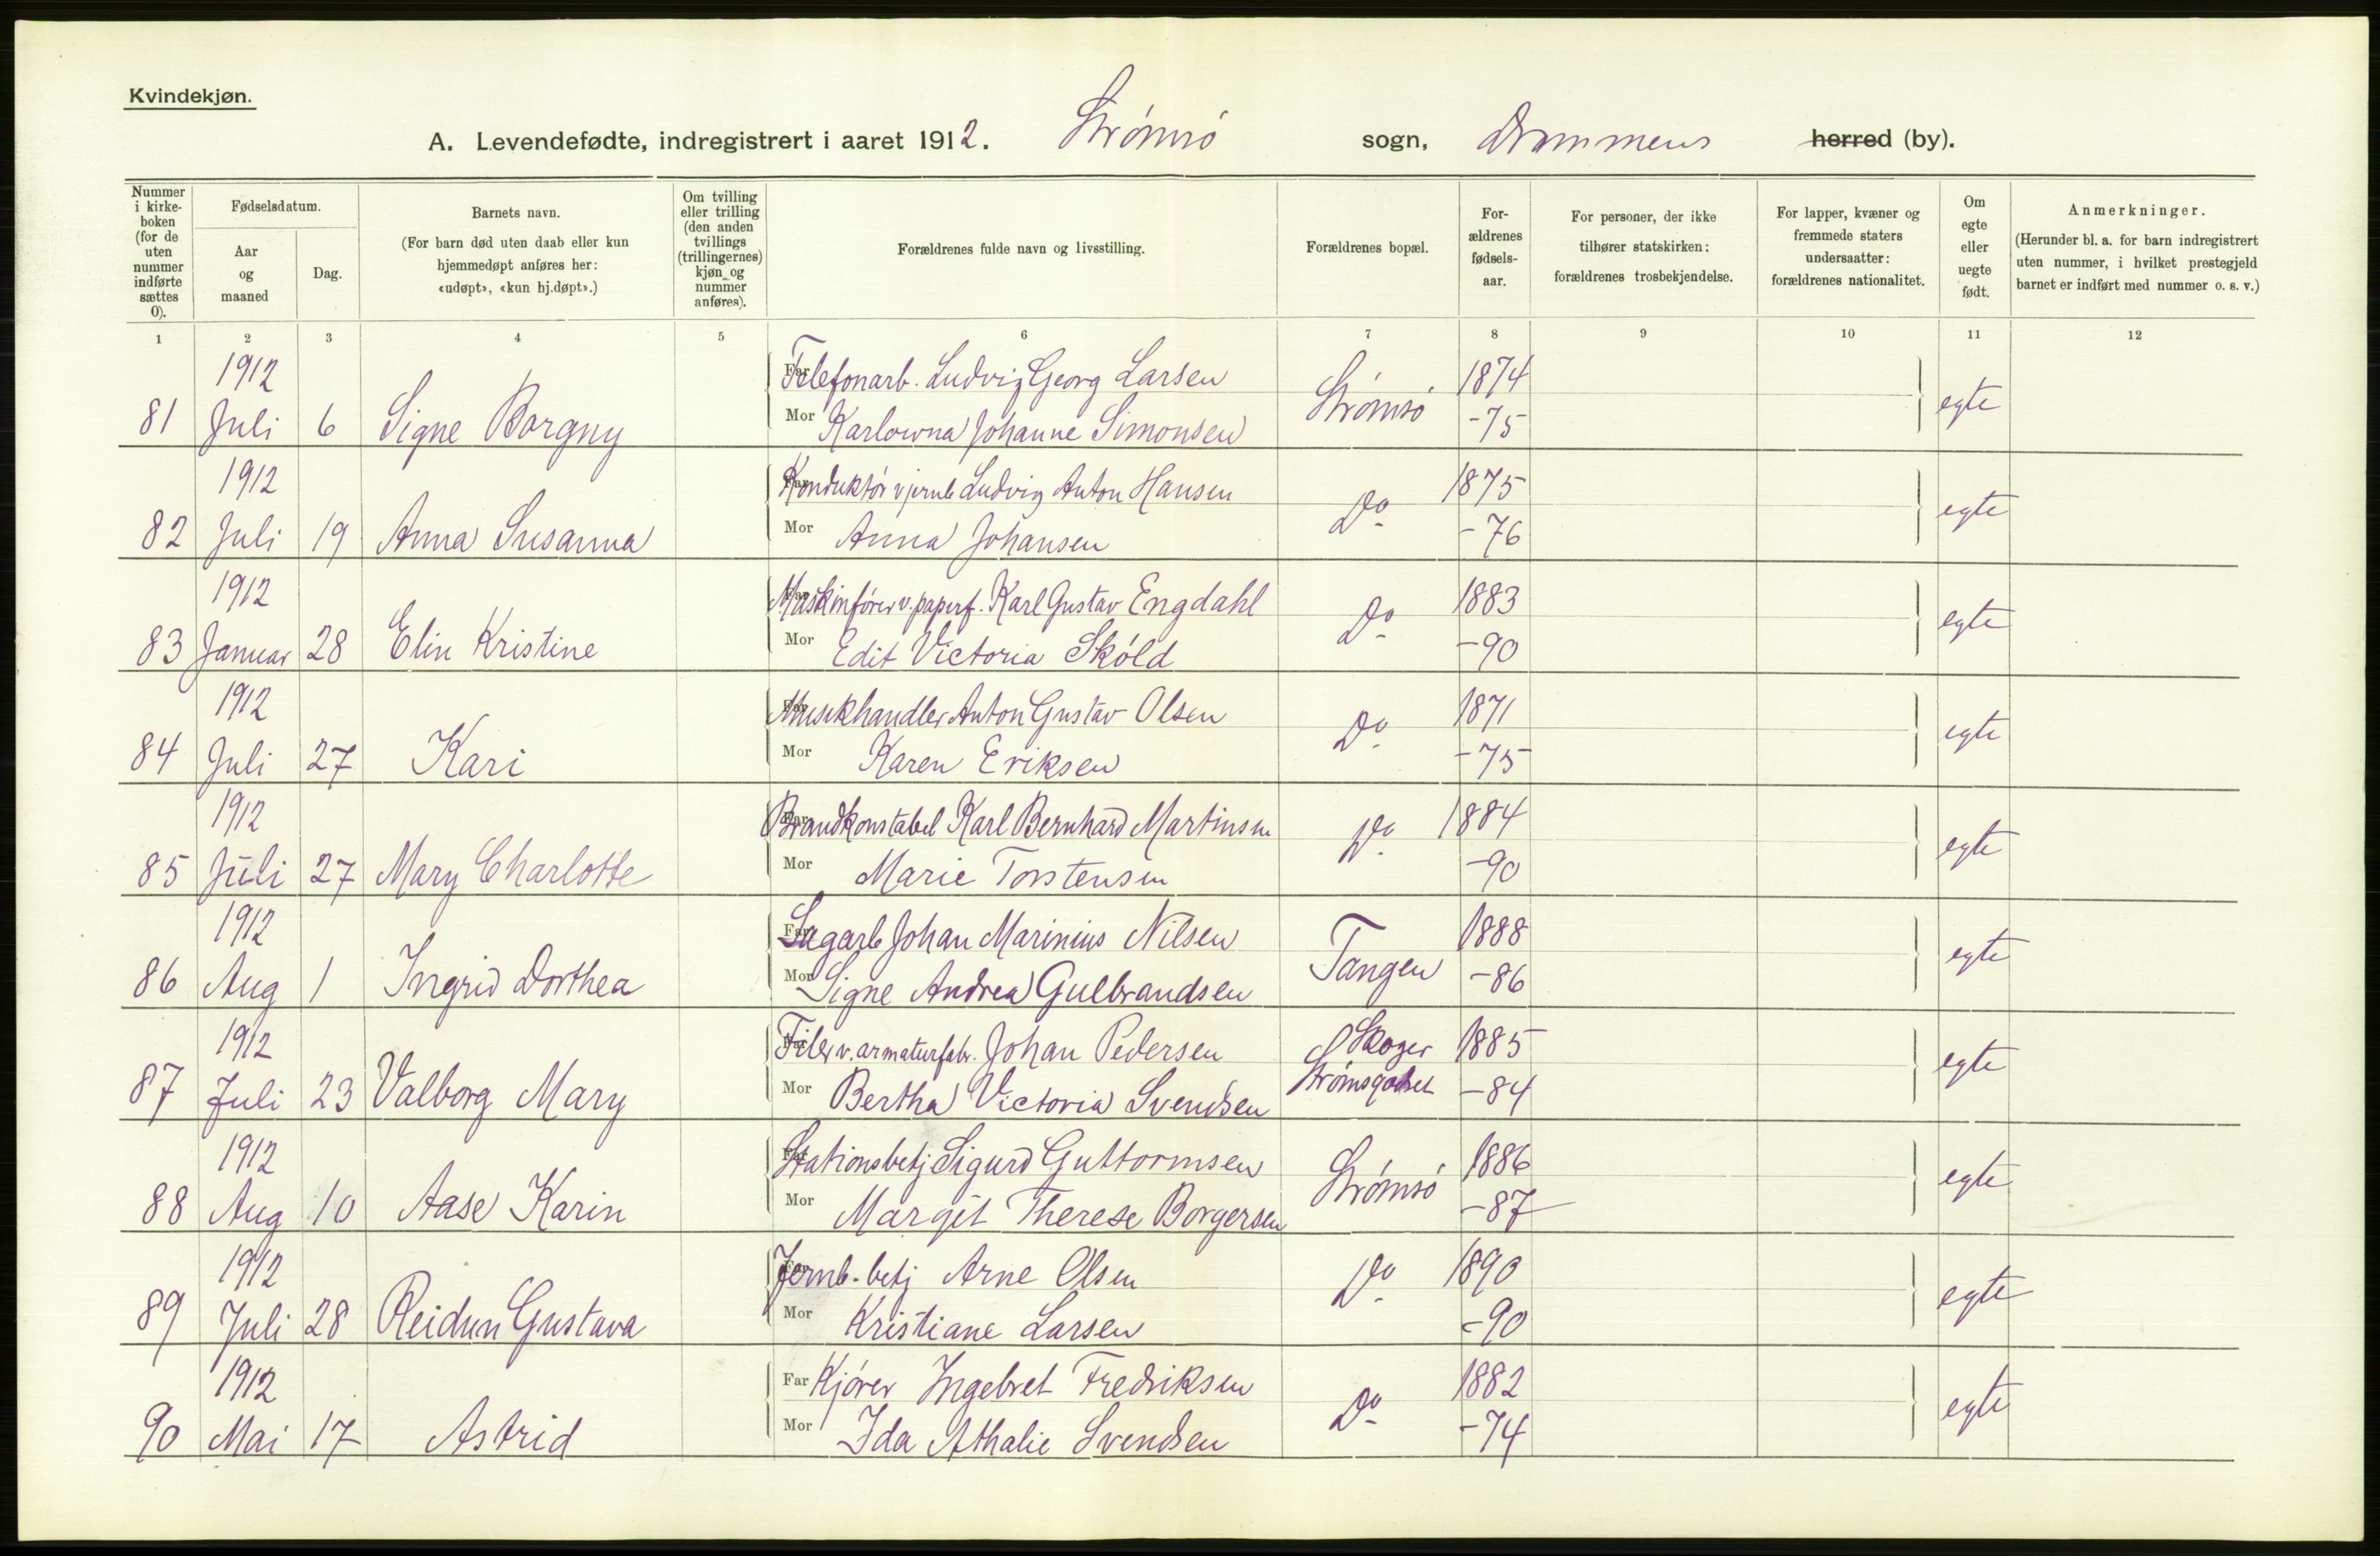 Kvindekjøn.
A. Levendefødte, indregistrert i aaret 1912. Strømsø sogn, Drammens herred (by).
Nummer i kirke-boken (for de uten nummer indførte sættes 0).
Fødselsdatum.
Aar og maaned
Dag.
Barnets navn.
(For barn død uten daab eller kun hjemmedøpt anføres her: «udøpt», «kun hj.døpt».)
Om tvilling eller trilling (den anden tvillings (trillingernes) kjøn og nummer anføres).
Forældrenes fulde navn og livsstilling.
Forældrenes bopæl.
For-ældrenes fødsels-aar.
For personer, der ikke tilhører statskirken: forældrenes trosbekjendelse.
For lapper, kvæner og fremmede staters undersaatter: forældrenes nationalitet.
Om egte eller uegte født.
Anmerkninger.
(Herunder bl. a. for barn indregistrert uten nummer, i hvilket prestegjeld barnet er indført med nummer o. s. v.)
1 2 3 4 5 6 7 8 9 10 11 12
1912 Far Telefonarb. Ludvig Georg Larsen Strømsø 1874 egte
81 Juli 6 Signe Borgny Mor Karlowna Johanne Simonsen -75
1912 Far Konduktør v jernb Ludvig Anton Hansen Do 1875 egte
82 Juli 19 Anna Susanna Mor Anna Johansen -76
1912 Far Maskinfører v. papirf. Karl Gustav Engdahl Do 1883 egte
83 Januar 28 Elin Kristine Mor Edit Victoria Skøld -90
1912 Far Musikhandler Anton Gustav Olsen Do 1871 egte
84 Juli 27 Kari Mor Karen Eriksen -75
1912 Far Brandkonstabel Karl Bernhard Martinsen Do 1884 egte
85 Juli 27 Mary Charlotte Mor Marie Torstensen -90
1912 Far Sagarb Johan Marinius Nilsen Tangen 1888 egte
86 Aug 1 Ingrid Dorthea Mor Signe Andrea Gulbrandsen -86
1912 Far Filer v. armaturfabr. Johan Pedersen Skoger 1885 egte
87 Juli 23 Valborg Mary Mor Bertha Victoria Svendsen Strømsgodset -84
1912 Far Stationsbetj Sigurd Guttormsen Strømsø 1886 egte
88 Aug 10 Aase Karin Mor Margit Therese Borgersen -87
1912 Far Jernb.betj Arne Olsen Do 1890 egte
89 Juli 28 Reidun Gustava Mor Kristiane Larsen -90
1912 Far Kjører Ingebret Fredriksen Do 1882 egte
90 Mai 17 Astrid Mor Ida Athalie Svendsen -74